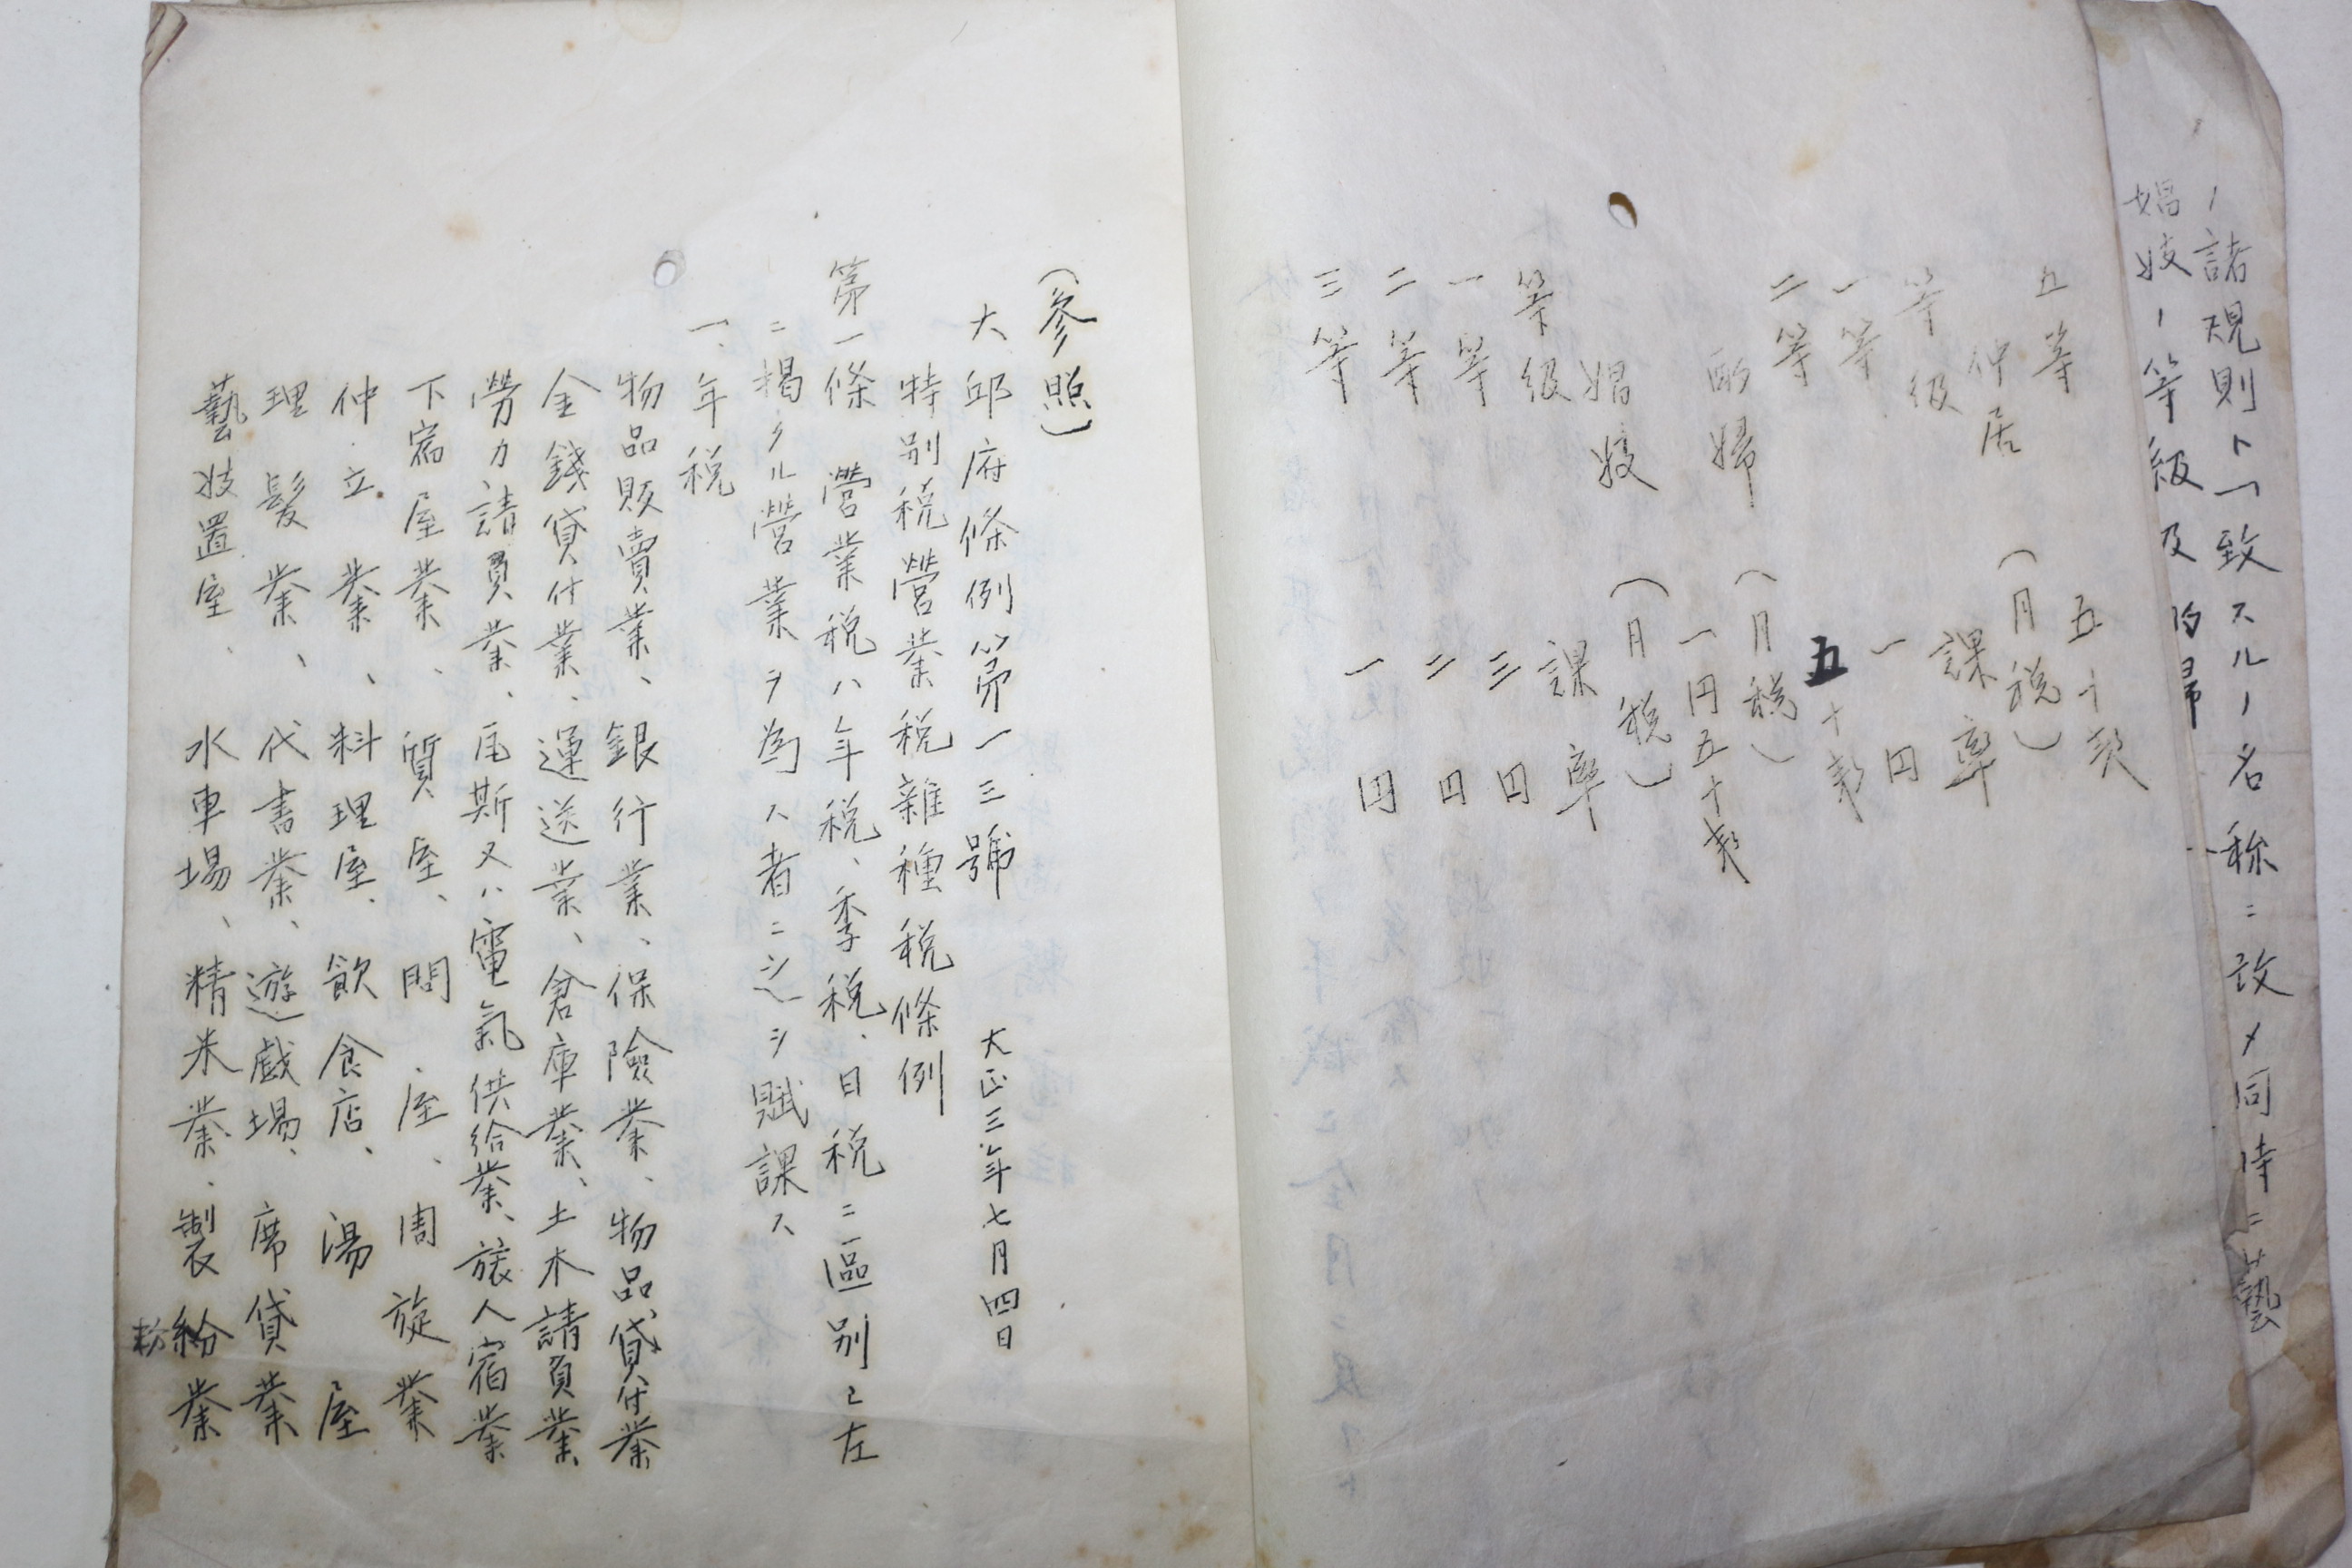 諸規則ト一致スルノ名称ニ改メ同時ニ藝
娼妓ノ等級及
五等 五十銭
仲居 (月税)
等級 課率
一等 一円
二等 五十銭
酌婦 (月税)
一円五十銭
娼妓 (月税)
等級 課率
一等 三円
二等 二円
三等 一円
(参照)
大邱府條例第一三號 大正三年七月四日
特別税營業税雜種税條例
第一條 營業税ハ年税、季税、日税ニ區別シ左
ニ掲クル營業ヲ為ス者ニ之ヲ賦課ス
一、年税
物品販賣業、銀行業、保險業、物品貸付業
金錢貸付業、運送業、倉庫業、土木請負業
勞力請負業、瓦斯又ハ電氣供給業、旅人宿業
下宿屋業、質屋、問屋、周旋業
仲立業、料理屋、飲食店、湯屋
理髪業、代書業、遊戯場、席貸業
藝妓置屋、水車場、精米業、製紛業
粉